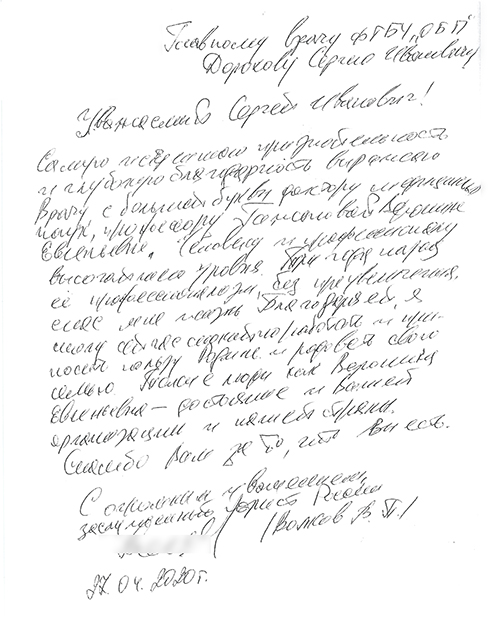 Главному врачу ФГБУ „ОБП"
Дорохову Сергею Ивановичу
Уважаемый Сергей Иванович!
Самую искреннюю признательность
и глубокую благодарность выражаю
Врачу с большой буквы доктору медицинских
наук, профессору Вераонике
Евгеньевне, Человеку и профессионалу
высочайшего уровня. Три года назад
её профессионализм, без преувеличения,
спас мне жизнь. Благодаря ей, я
могу сейчас спокойно работать и при-
носить пользу Родине и радовать свою
семью. Такие люди как Вероника
Евгеньевна – достояние и Вашей
организации и нашей страны.
Спасибо Вам за то, что Вы есть.
С огромным уважением,
заслуженный юрист России
/Волков В. П./
27.04.2020г.